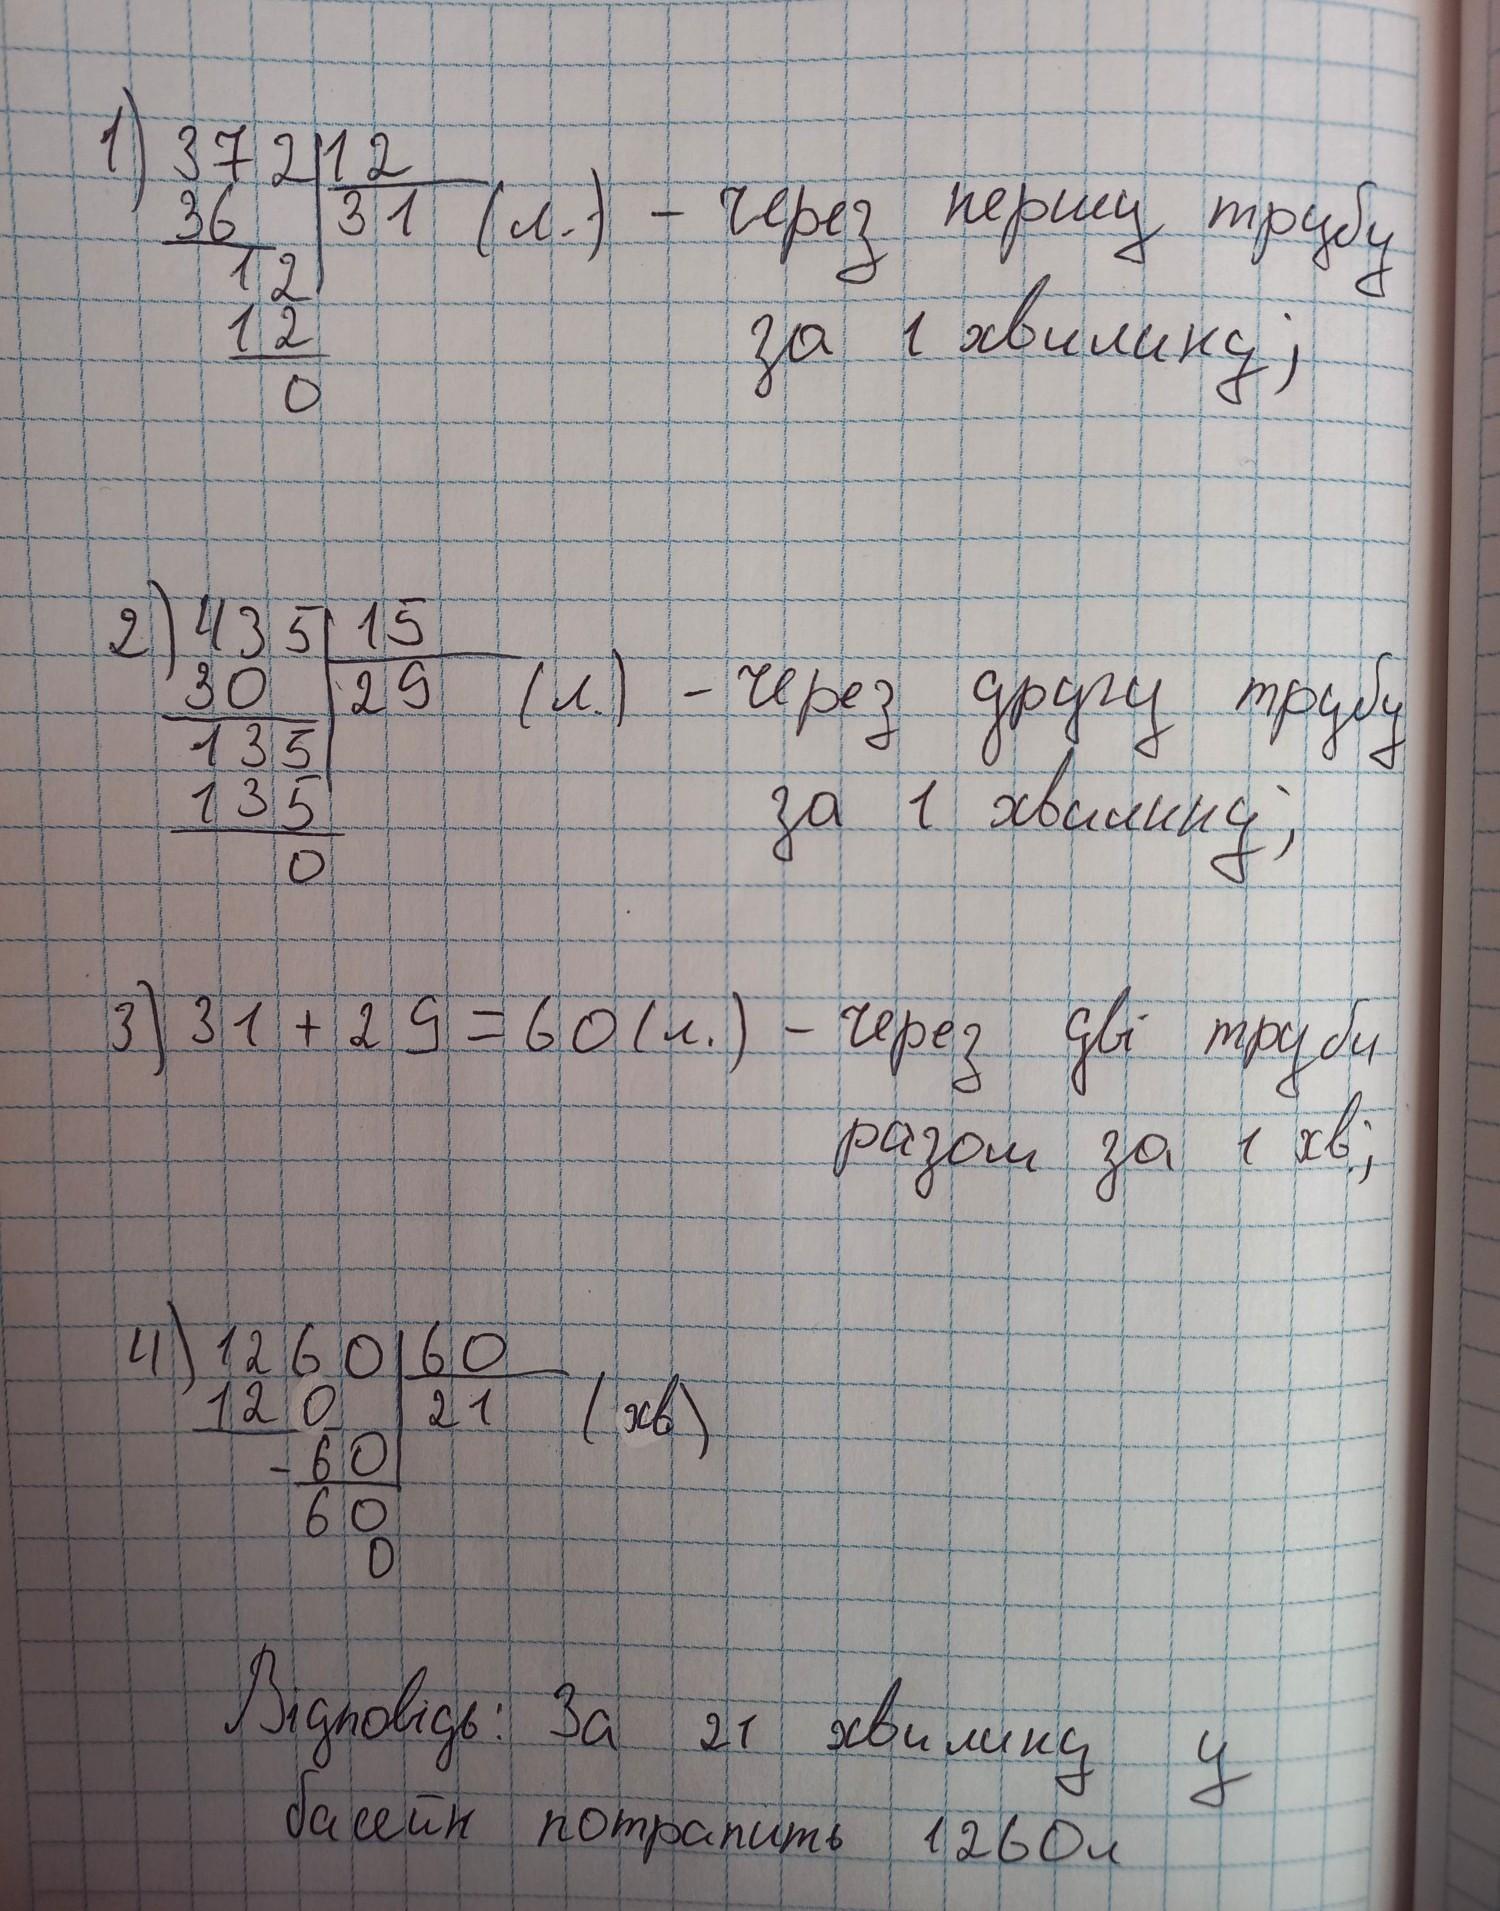 1) 372 12
36 31 (л.) - через першу трубу
12
12 за 1 хвилину;
0
2) 435 15
30 29 (л.) - через другу трубу
135
135 за 1 хвилину;
0
3) 31 + 29 = 60 (л.) - через дві труби
разом за 1 хв.;
4) 1260 60
120 21 (хв)
- 60
60
0
Відповідь: За 21 хвилину у
басейн потрапить 1260л